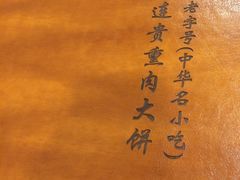 老字号(中华名小吃)
连贵熏肉大饼